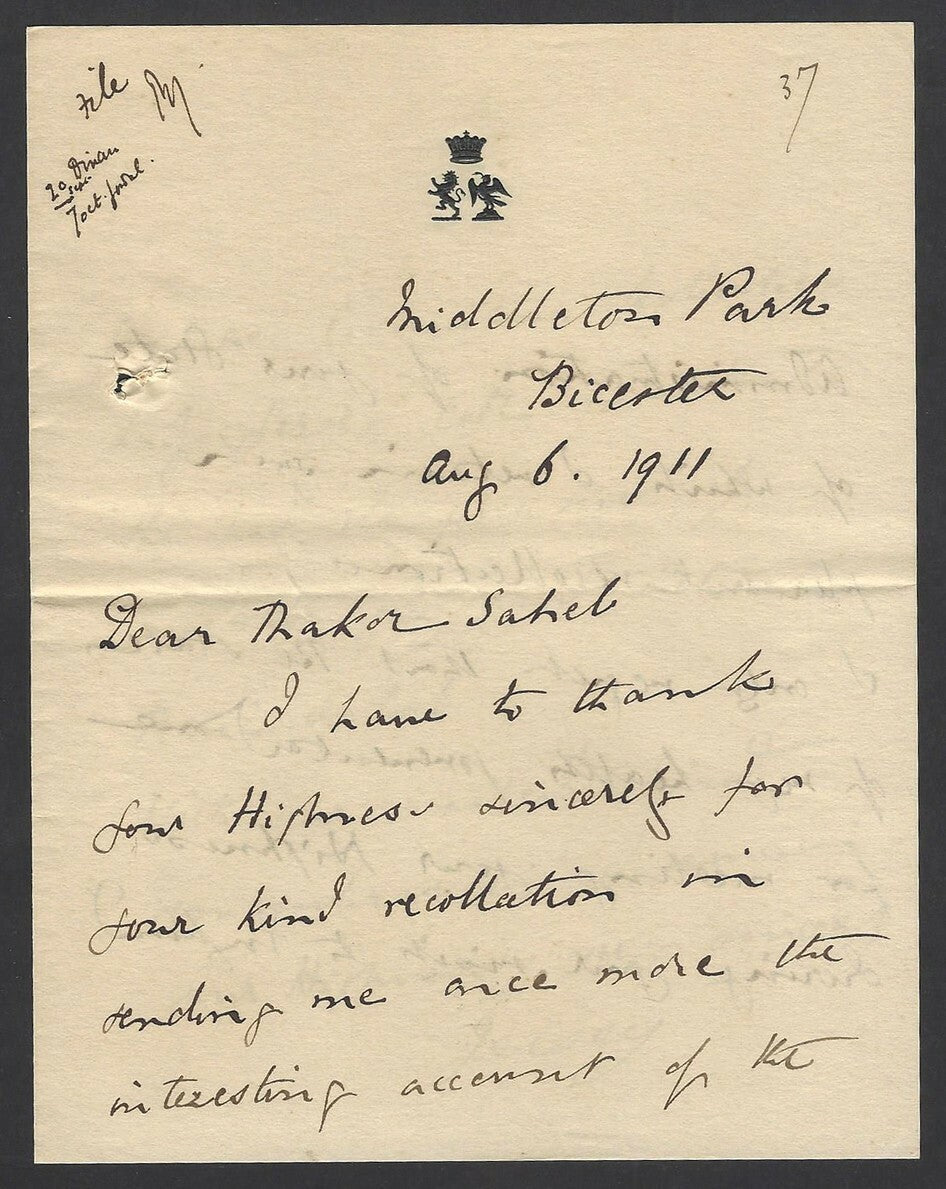 File
37
20 Dinan
Sept.
7 oct.
Middleton Park
Bicester
Aug 6. 1911
Dear Thakor Saheb
I have to thank
your Highness sincerely for
your kind recollection in
sending me once more the
interesting account of the